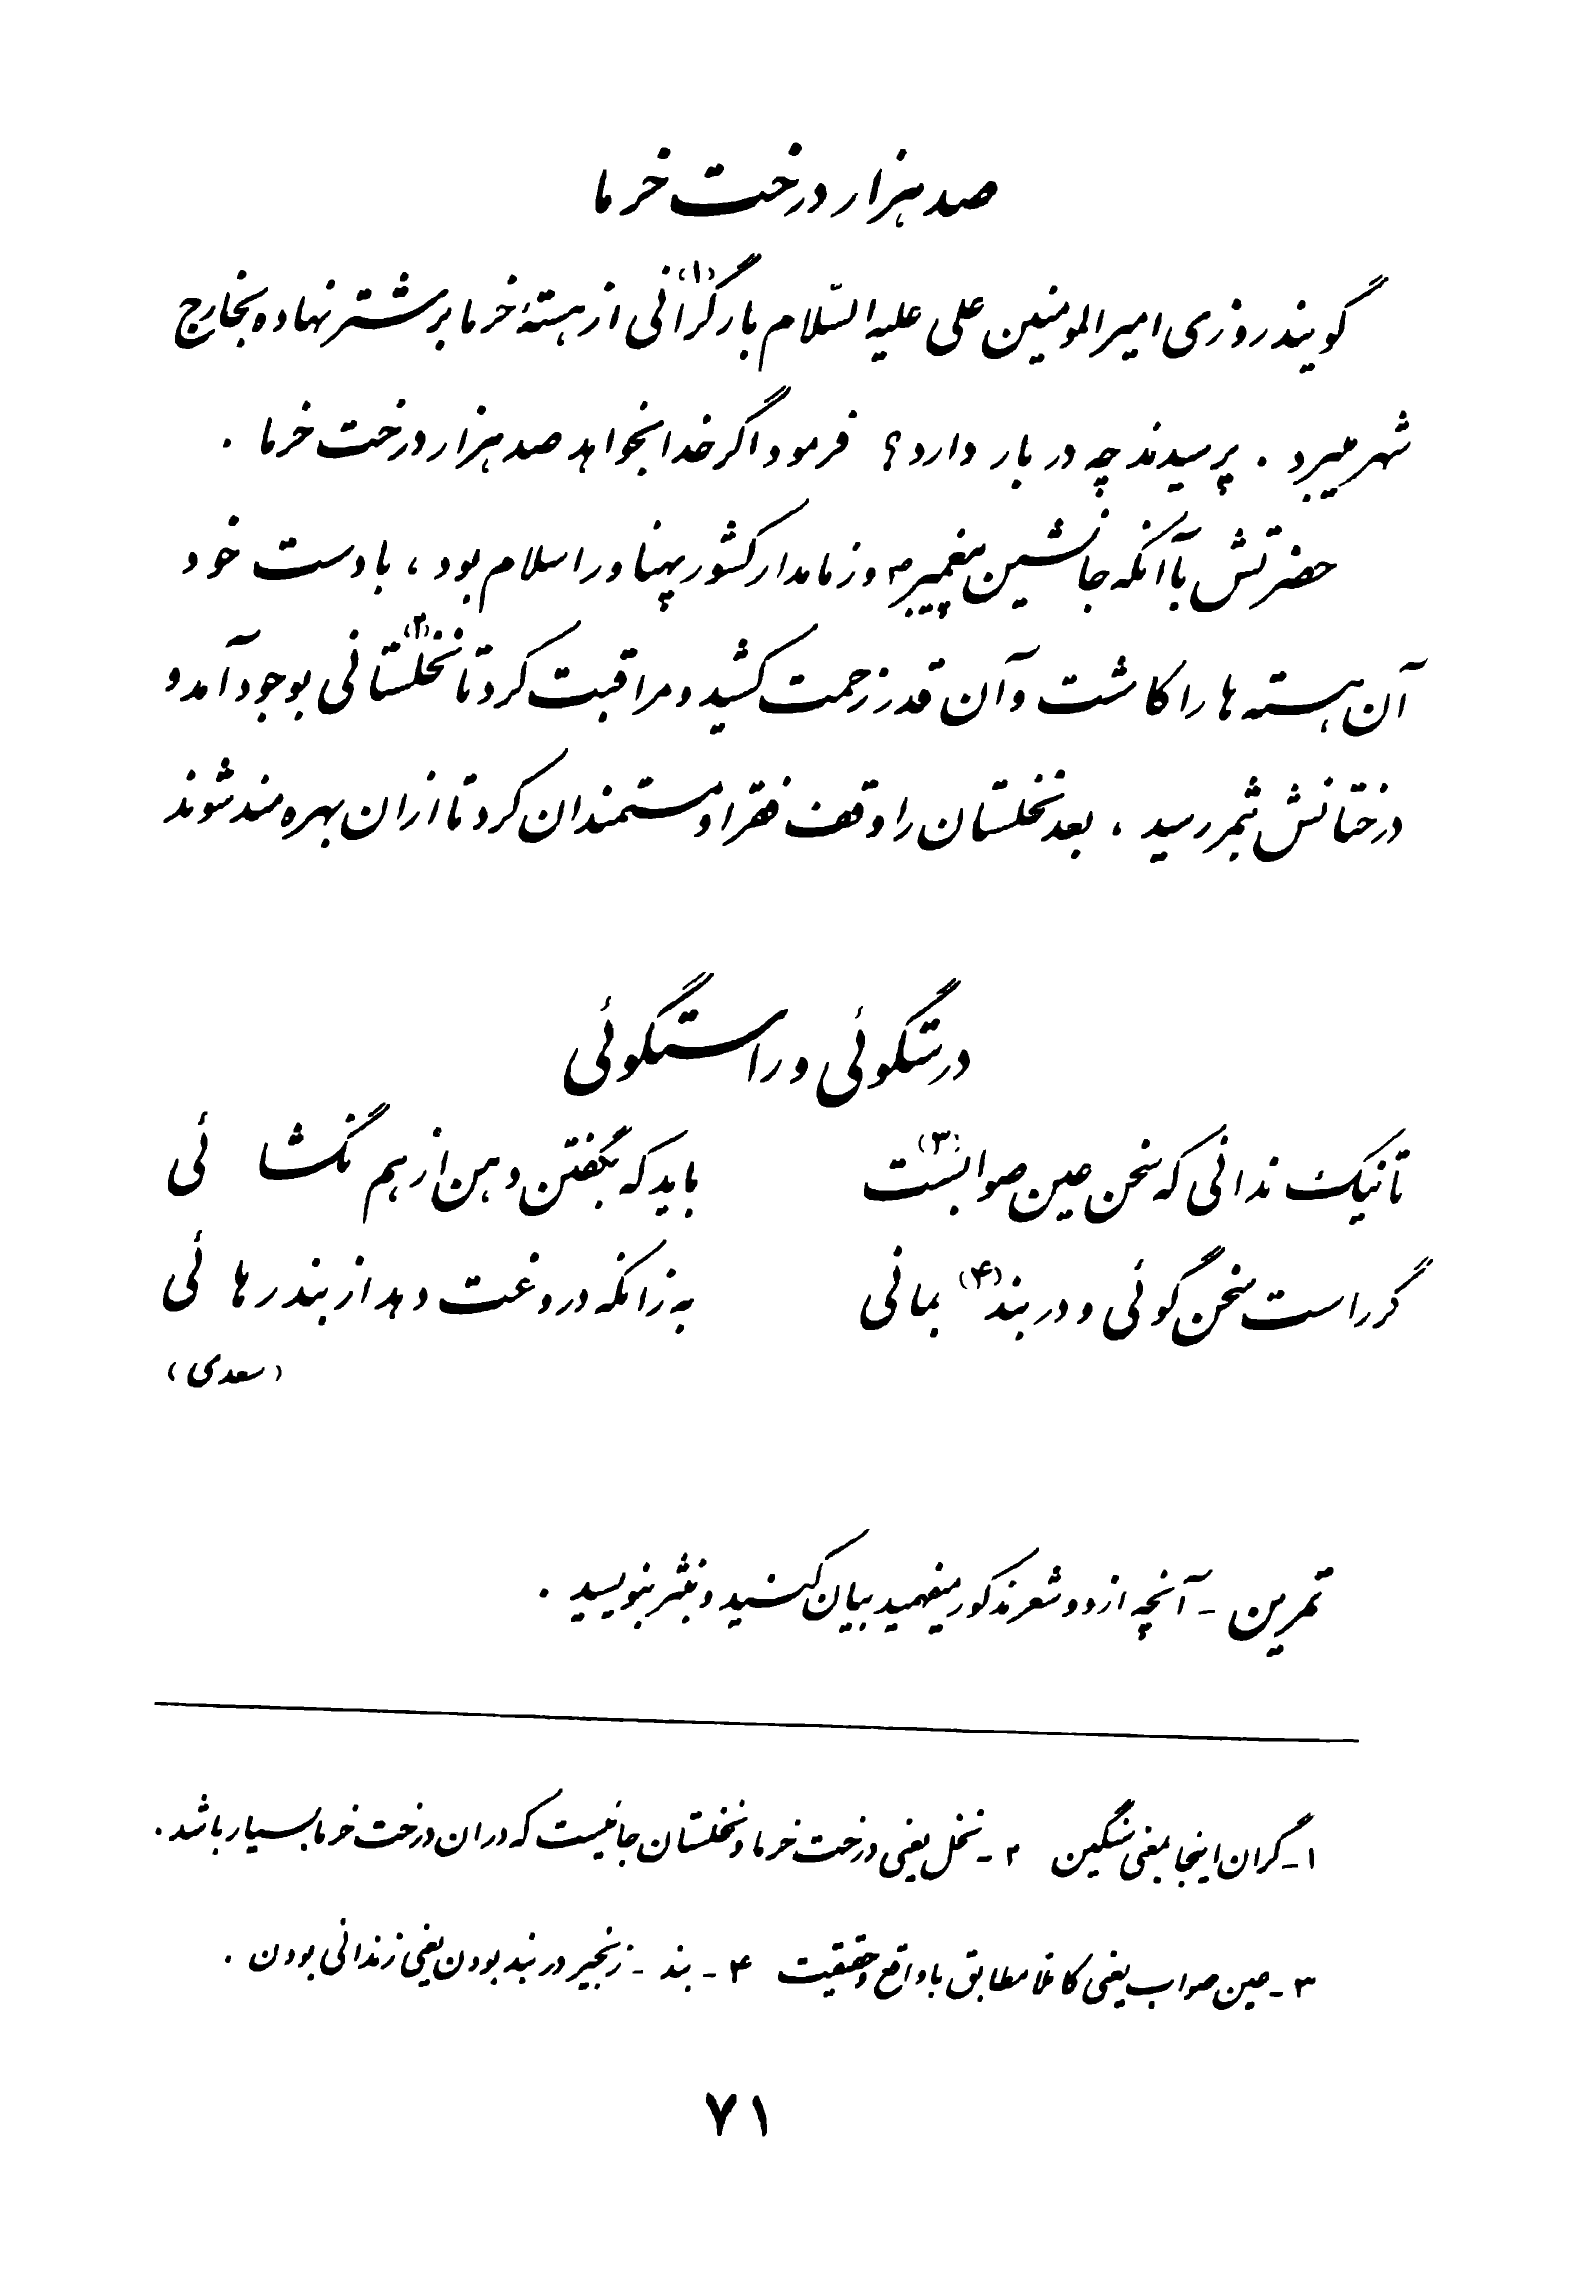 صد هزار درخت خرما
گویند روزی امیرالمومنین علی علیه السّلام بار گرانی(۱) از هستهٔ خرما بر شتر نهاده بخارج
شهر میبرد . پرسیدند چه در بار دارد؟ فرمود اگر خدا بخواهد صد هزار درخت خرما .
حضرتش با آنکه جانشین پیغمبر و زمامدار کشور پهناور اسلام بود ، با دست خود
آن هسته ها را کاشت و آن قدر زحمت کشید و مراقبت کرد تا نخلستانی(۲) بوجود آمد و
درختانش بثمر رسید ، بعد نخلستان را وقف فقرا و مستمندان کرد تا ازان بهره مند شوند
درستگوئی و راستگوئی
تا نیک ندانی که سخن عین صوابست(۳) باید که بگفتن دهن از هم نگشائی
گر راست سخن گوئی و در بند(۴) بمانی به زانکه دروغت دهد از بند رهائی
(سعدی)
تمرین - آنچه از دو شعر مذکور میفهمید بیان کنید و بنثر بنویسید .
۱- گران اینجا بمعنی سنگین ۲- نخل یعنی درخت خرما و نخلستان جائیست که دران درخت خرما بسیار باشد .
۳- عین صواب یعنی کاملا مطابق با واقع و حقیقت ۴- بند - زنجیر در بند بودن یعنی زندانی بودن .
۷۱